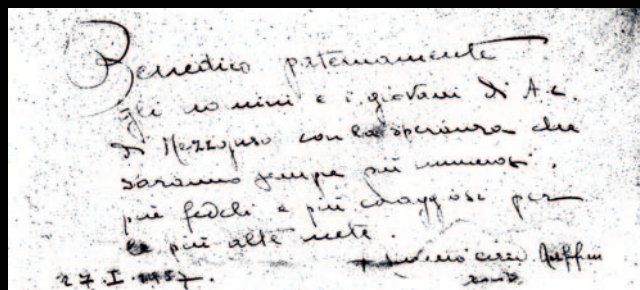 Benedico paternamente
gli uomini e i giovani di A.C.
di Mezzojuso con la speranza che
saranno sempre più numerosi,
più fedeli e più coraggiosi per
le più alte mete.
27.I.1957. + Ruffini